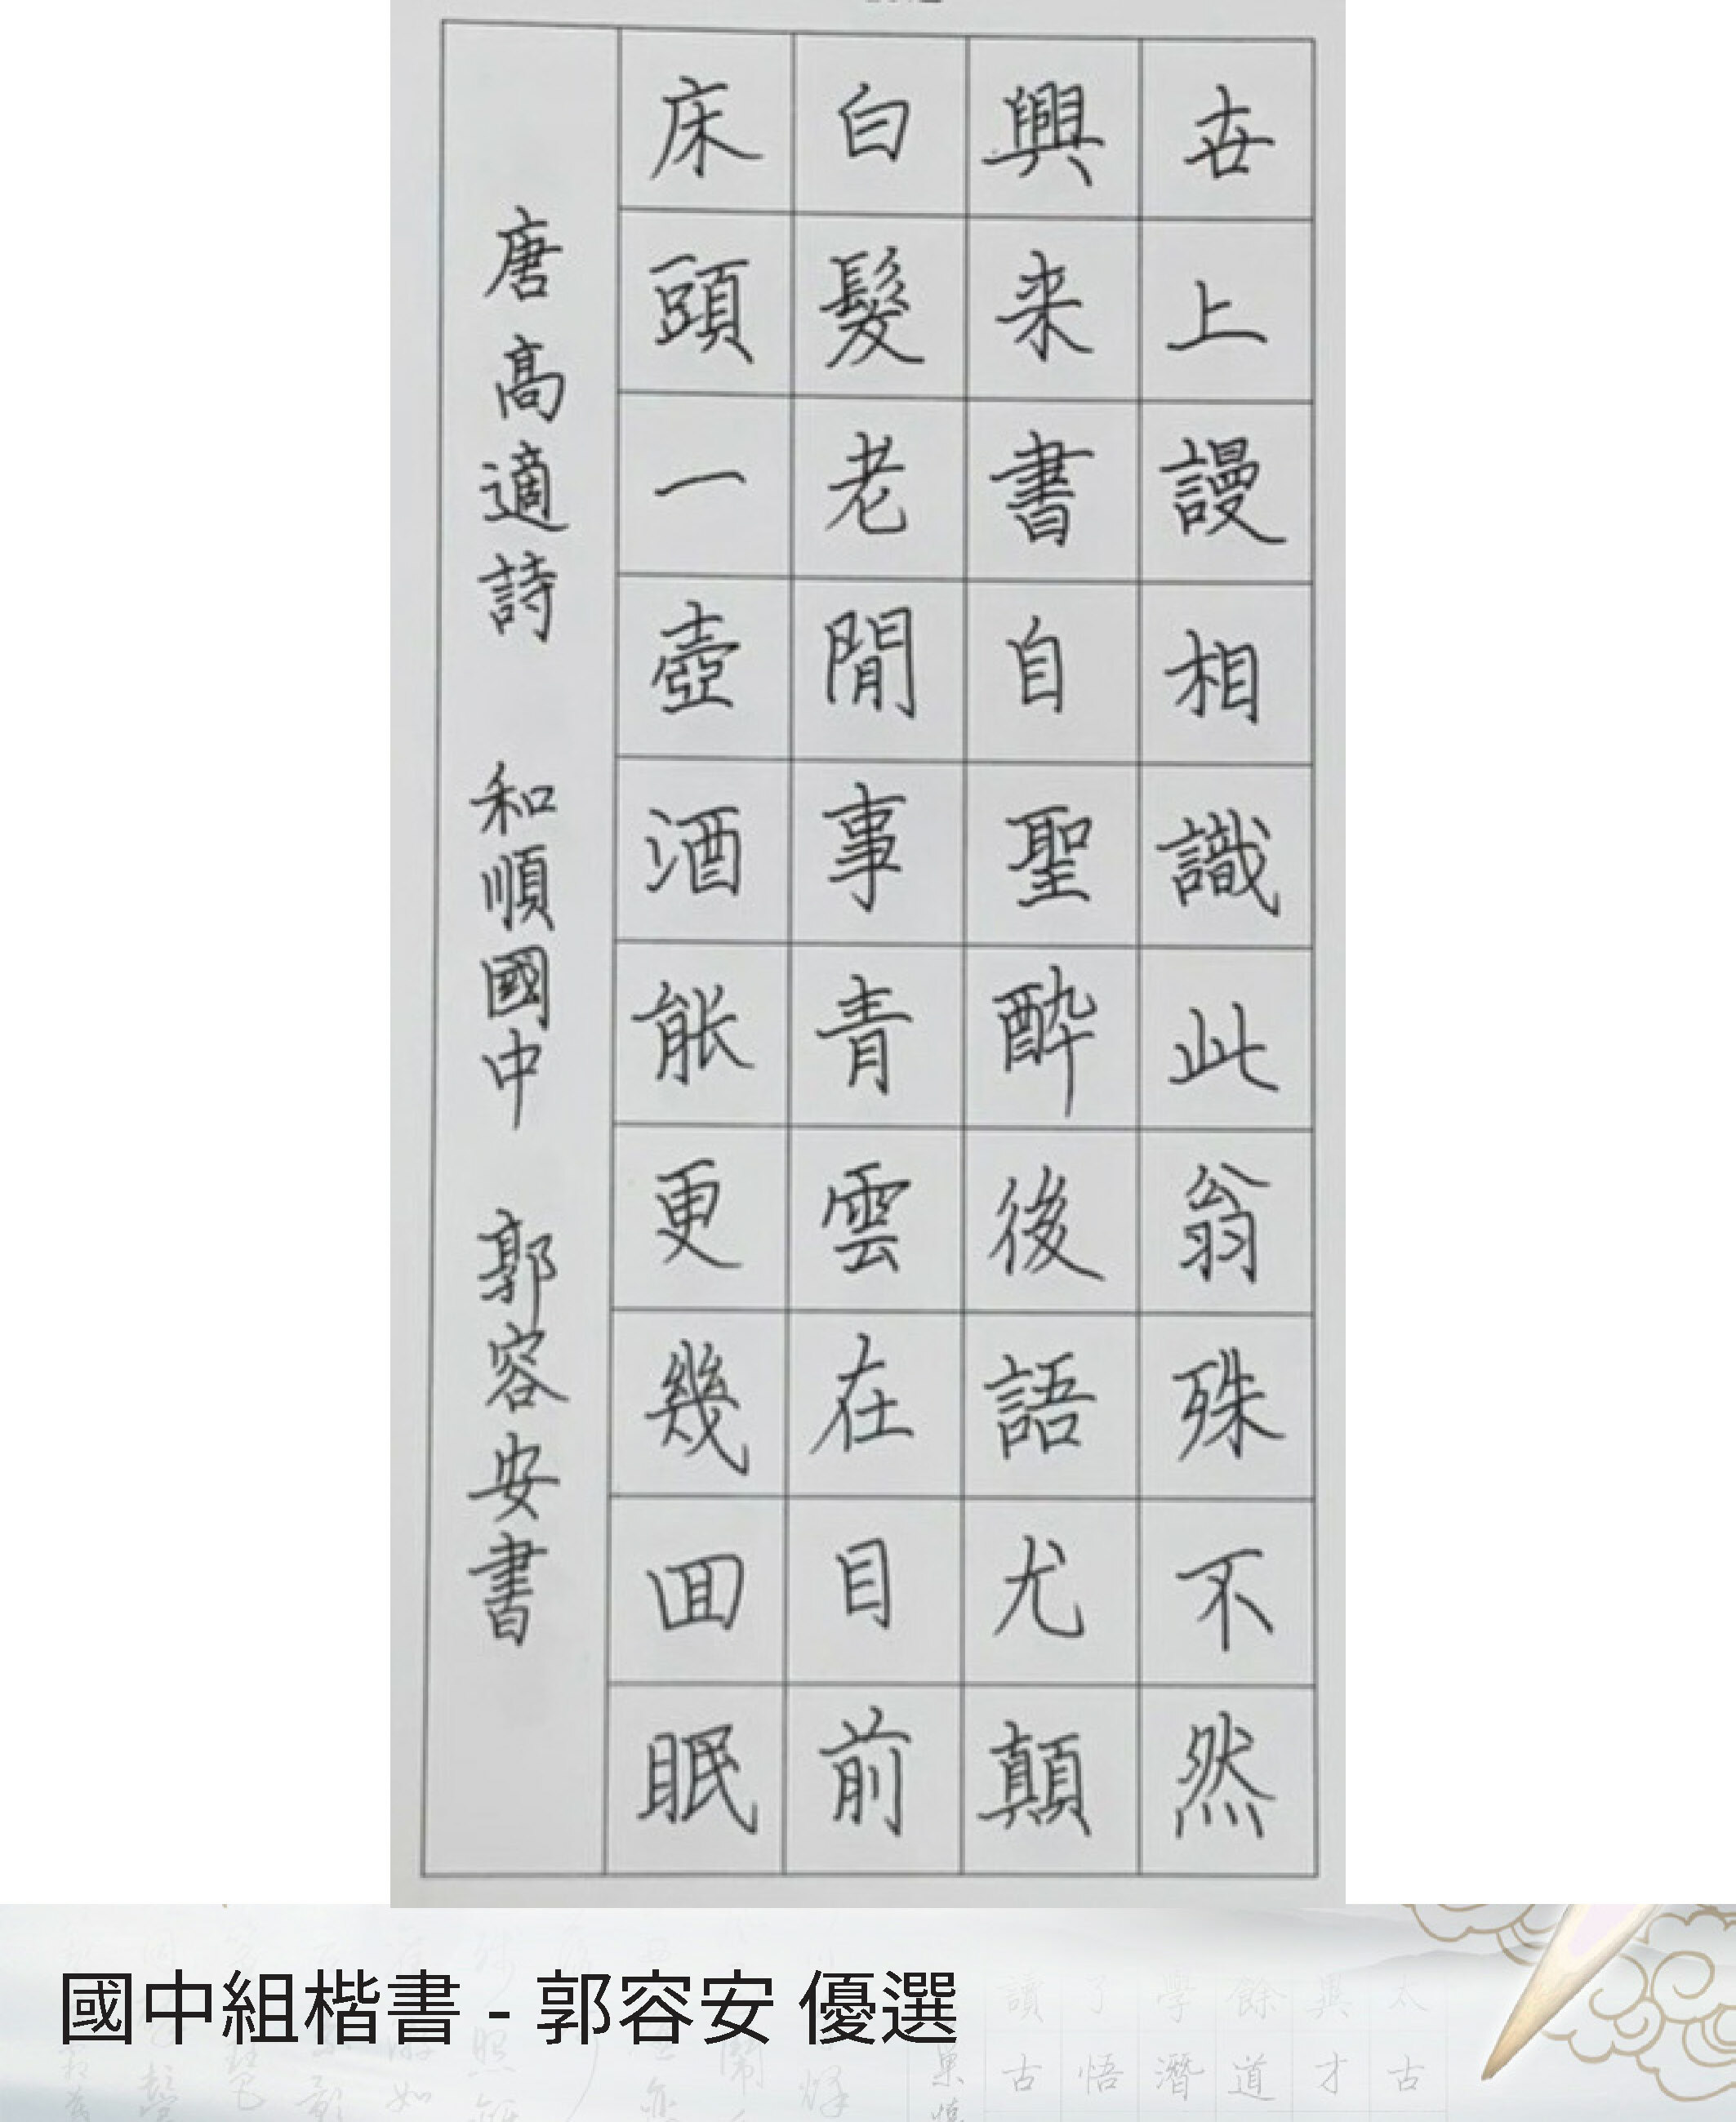 世上謾相識此翁殊不然
興来書自聖醉後語尤顛
白髮老閒事青雲在目前
床頭一壺酒能更幾回眠
唐高適詩 和順國中 郭容安書
國中組楷書 - 郭容安 優選
讀了學餘與太
古悟潛道才古